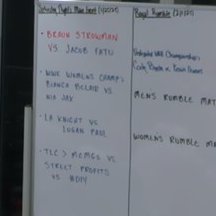 Saturday Night's Main Event
Royal Rumble
• BRAUN STROWMAN
VS JACOB FATU
• WWE WOMENS CHAMP>
BIANCA BELAIR VS
NIA JAX
• LA KNIGHT VS
LOGAN PAUL
• TLC > MCMGS VS
STREET PROFITS
VS #DIY
Undisputed WWE Championship
Cody Rhodes vs Kevin Owens
MENS RUMBLE MAT
WOMENS RUMBLE MA